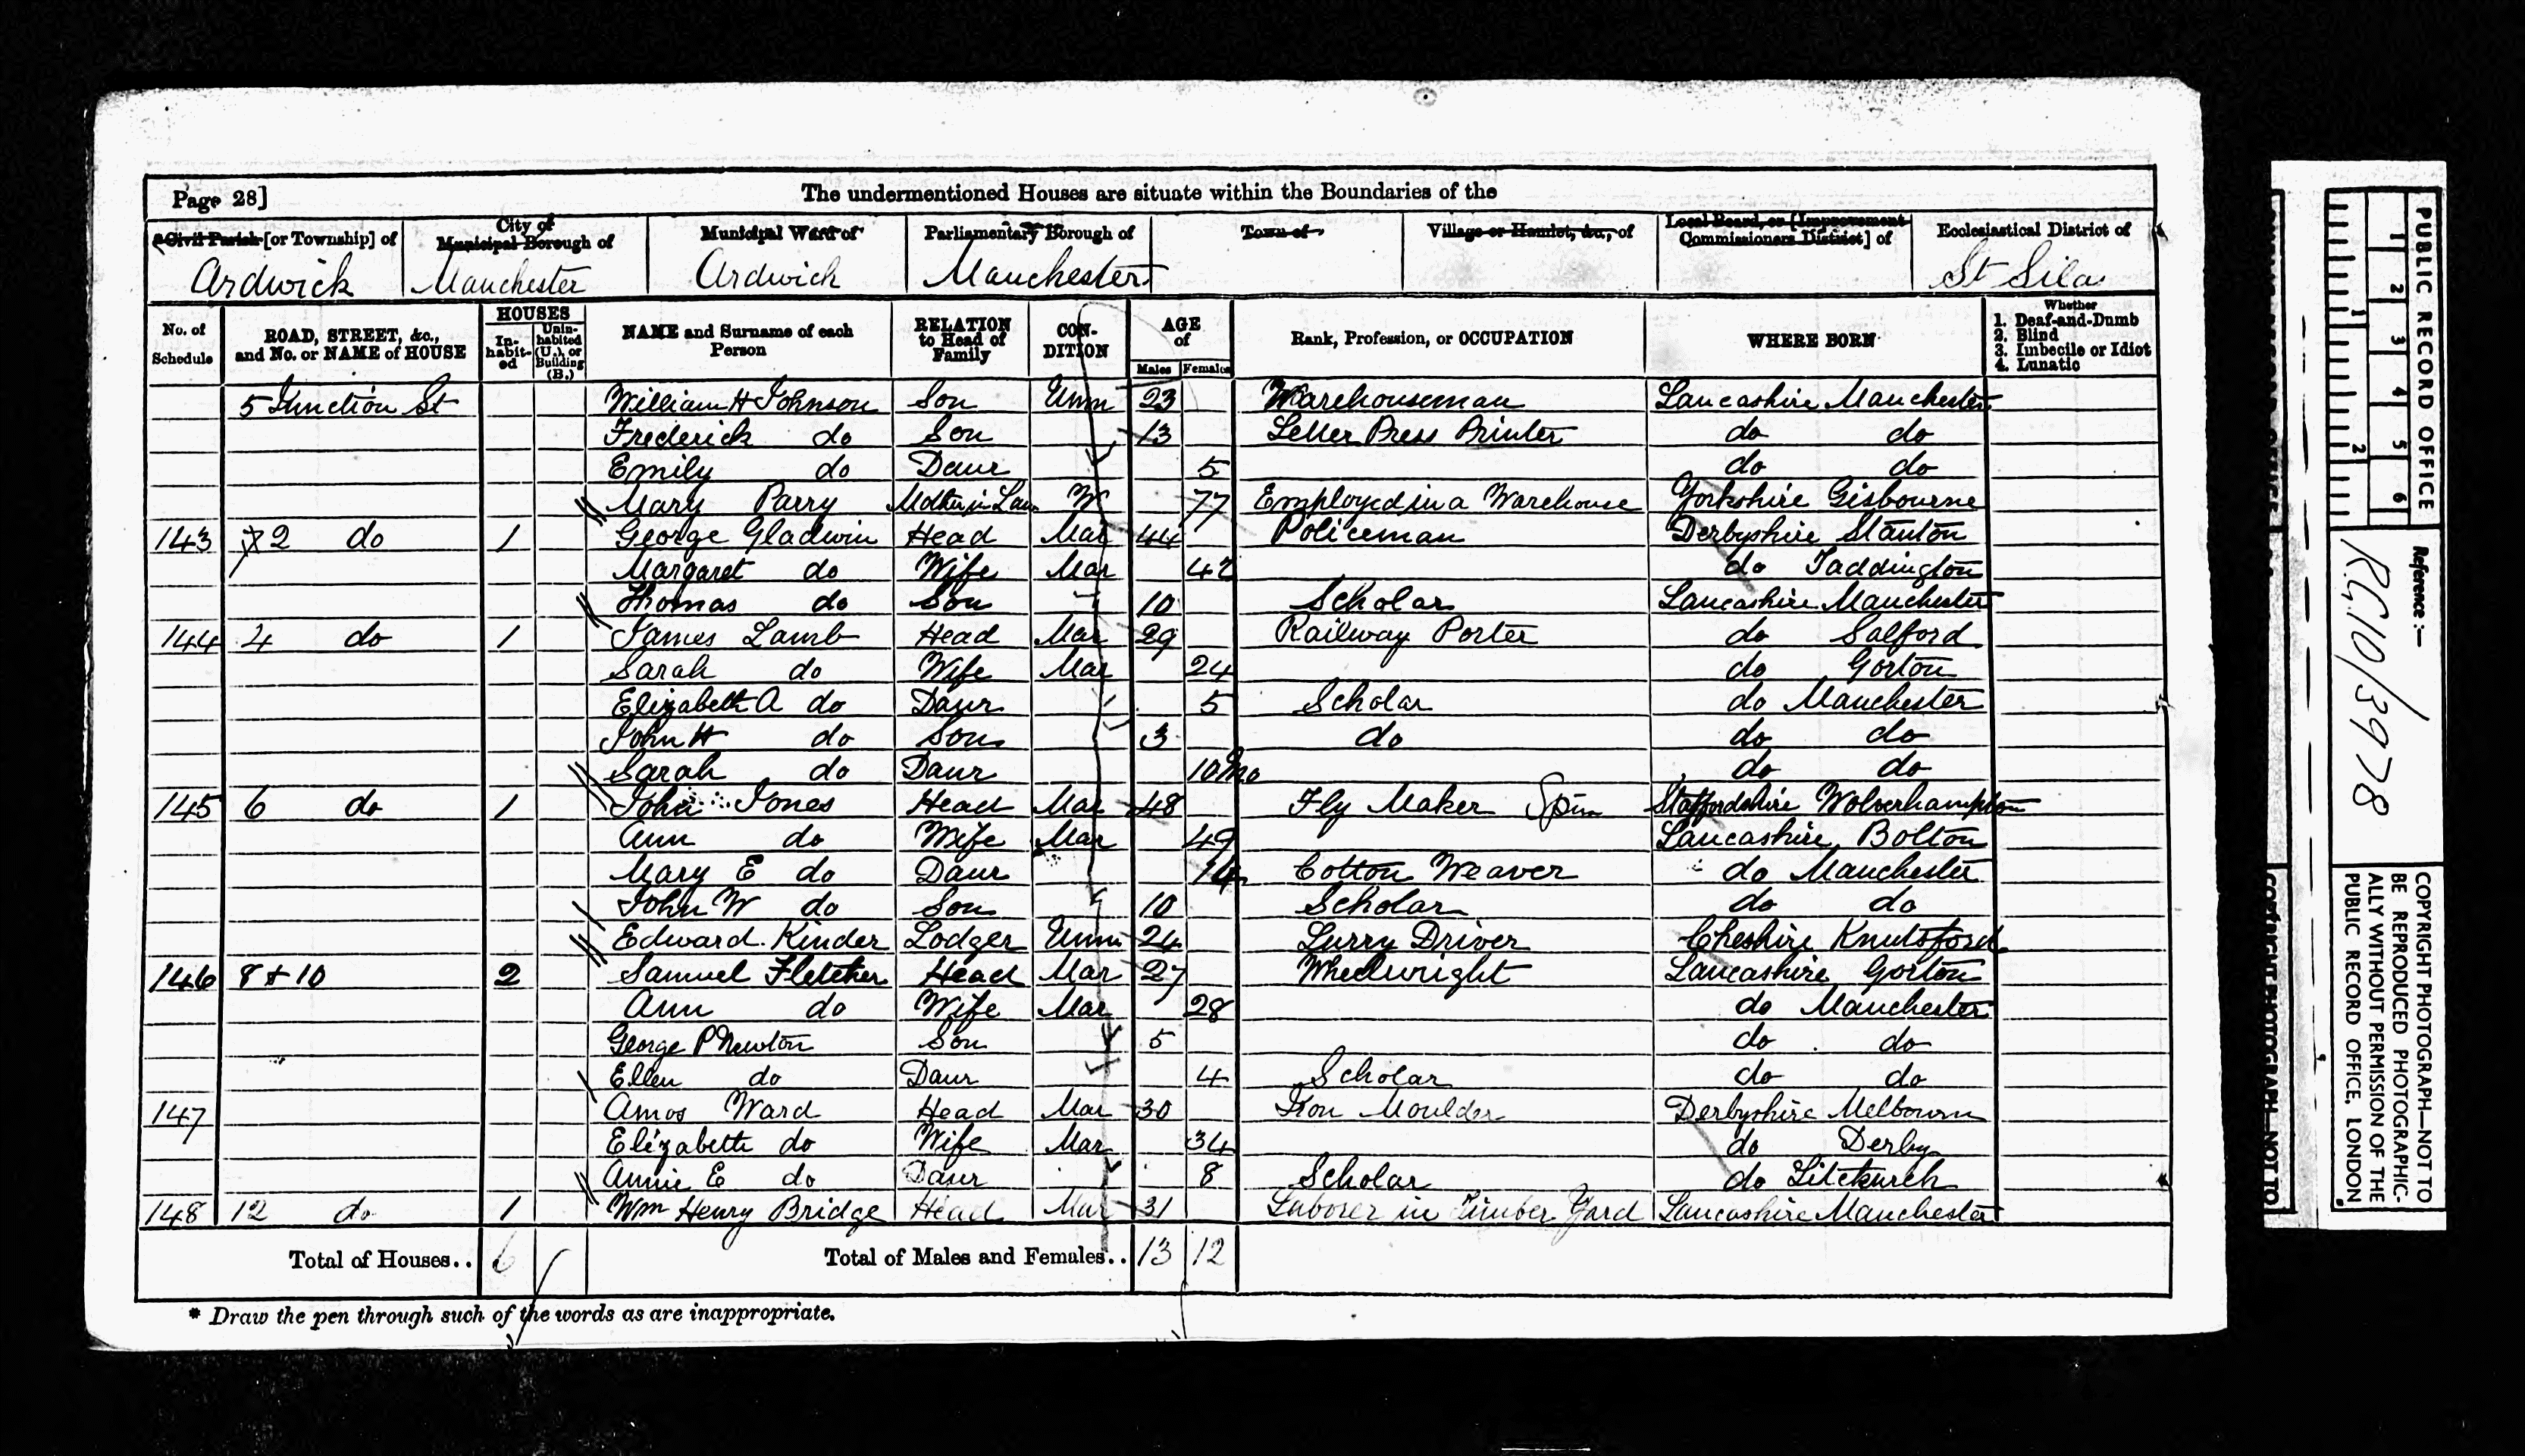 Page 28]
The undermentioned Houses are situate within the Boundaries of the
* Civil Parish [or Township] of
City of Municipal Borough of
Municipal Ward of
Parliamentary Borough of
Town of
Village or Hamlet, &c., of
Local Board, or [Improvement Commissioners District] of
Ecclesiastical District of
Ardwick Manchester Ardwick Manchester St Silas
No. of Schedule
ROAD, STREET, &c., and No. or NAME of HOUSE
HOUSES
In-habit-ed
Unin-habited (U.), or Building (B.)
NAME and Surname of each Person
RELATION to Head of Family
CON-DITION
AGE of
Males Females
Rank, Profession, or OCCUPATION
WHERE BORN
Whether
1. Deaf-and-Dumb
2. Blind
3. Imbecile or Idiot
4. Lunatic
5 Junction St William H Johnson Son Unm 23 Warehouseman Lancashire Manchester
Frederick do Son 13 Letter Press Printer do do
Emily do Daur 5 do do
Mary Parry Mother in Law W 77 Employed in a Warehouse Yorkshire Gisbourne
143 2 do 1 George Gladwin Head Mar 44 Policeman Derbyshire Stanton
Margaret do Wife Mar 42 do Taddington
Thomas do Son 10 Scholar Lancashire Manchester
144 4 do 1 James Lamb Head Mar 29 Railway Porter do Salford
Sarah do Wife Mar 24 do Gorton
Elizabeth A do Daur 5 Scholar do Manchester
John H do Son 3 do do do
Sarah do Daur 10 Mo do do
145 6 do 1 John Jones Head Mar 48 Fly Maker Spin Staffordshire Wolverhampton
Ann do Wife Mar 49 Lancashire Bolton
Mary E do Daur 14 Cotton Weaver do Manchester
John W do Son 10 Scholar do do
Edward Kinder Lodger Unm 24 Lurry Driver Cheshire Knutsford
146 8 + 10 2 Samuel Fletcher Head Mar 27 Wheelwright Lancashire Gorton
Ann do Wife Mar 28 do Manchester
George P Newton Son 5 do do
Ellen do Daur 4 Scholar do do
147 Amos Ward Head Mar 30 Iron Moulder Derbyshire Melbourn
Elizabeth do Wife Mar 34 do Derby
Annie E do Daur 8 Scholar do Litchurch
148 12 do 1 Wm Henry Bridge Head Mar 31 Laborer in Timber Yard Lancashire Manchester
Total of Houses.. 6 Total of Males and Females.. 13 12
* Draw the pen through such of the words as are inappropriate.
PUBLIC RECORD OFFICE
1 2 3 4 5 6
1 2
Reference:—
RG10/3978
COPYRIGHT PHOTOGRAPH—NOT TO
BE REPRODUCED PHOTOGRAPHIC-
ALLY WITHOUT PERMISSION OF THE
PUBLIC RECORD OFFICE, LONDON
COPYRIGHT PHOTOGRAPH—NOT TO